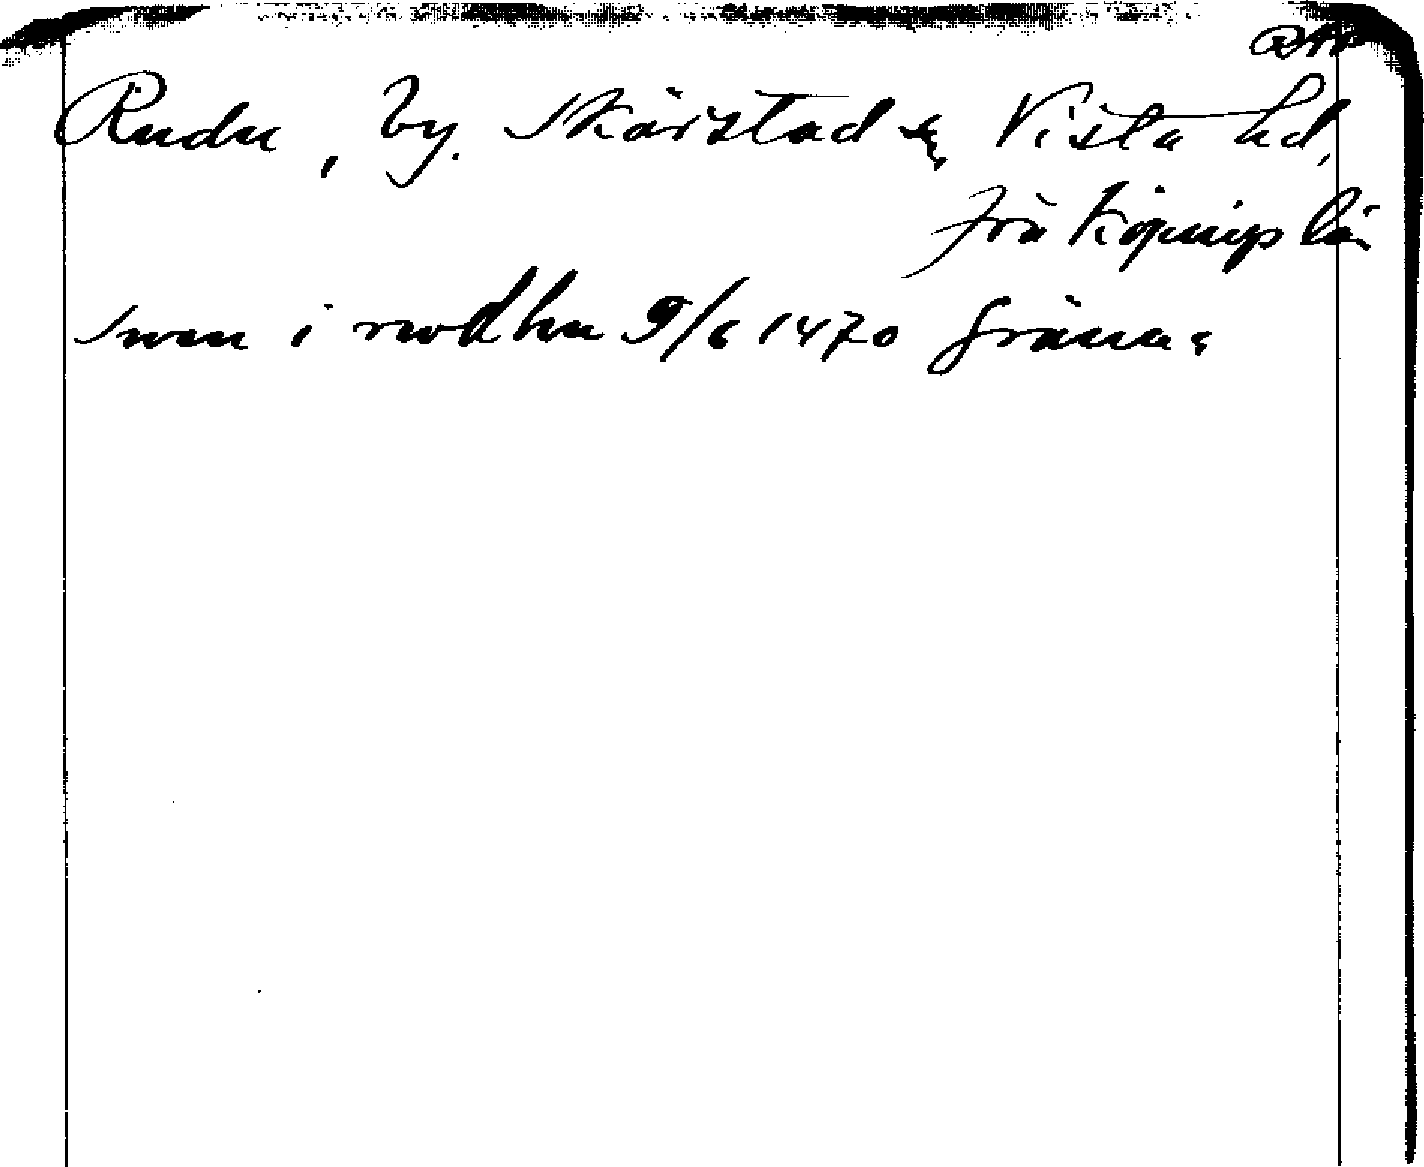 Rudu, by. Skärstad sn, Vista hd,
Jönköpings län
Swen i rwdhu 9/6 1470 Gränna